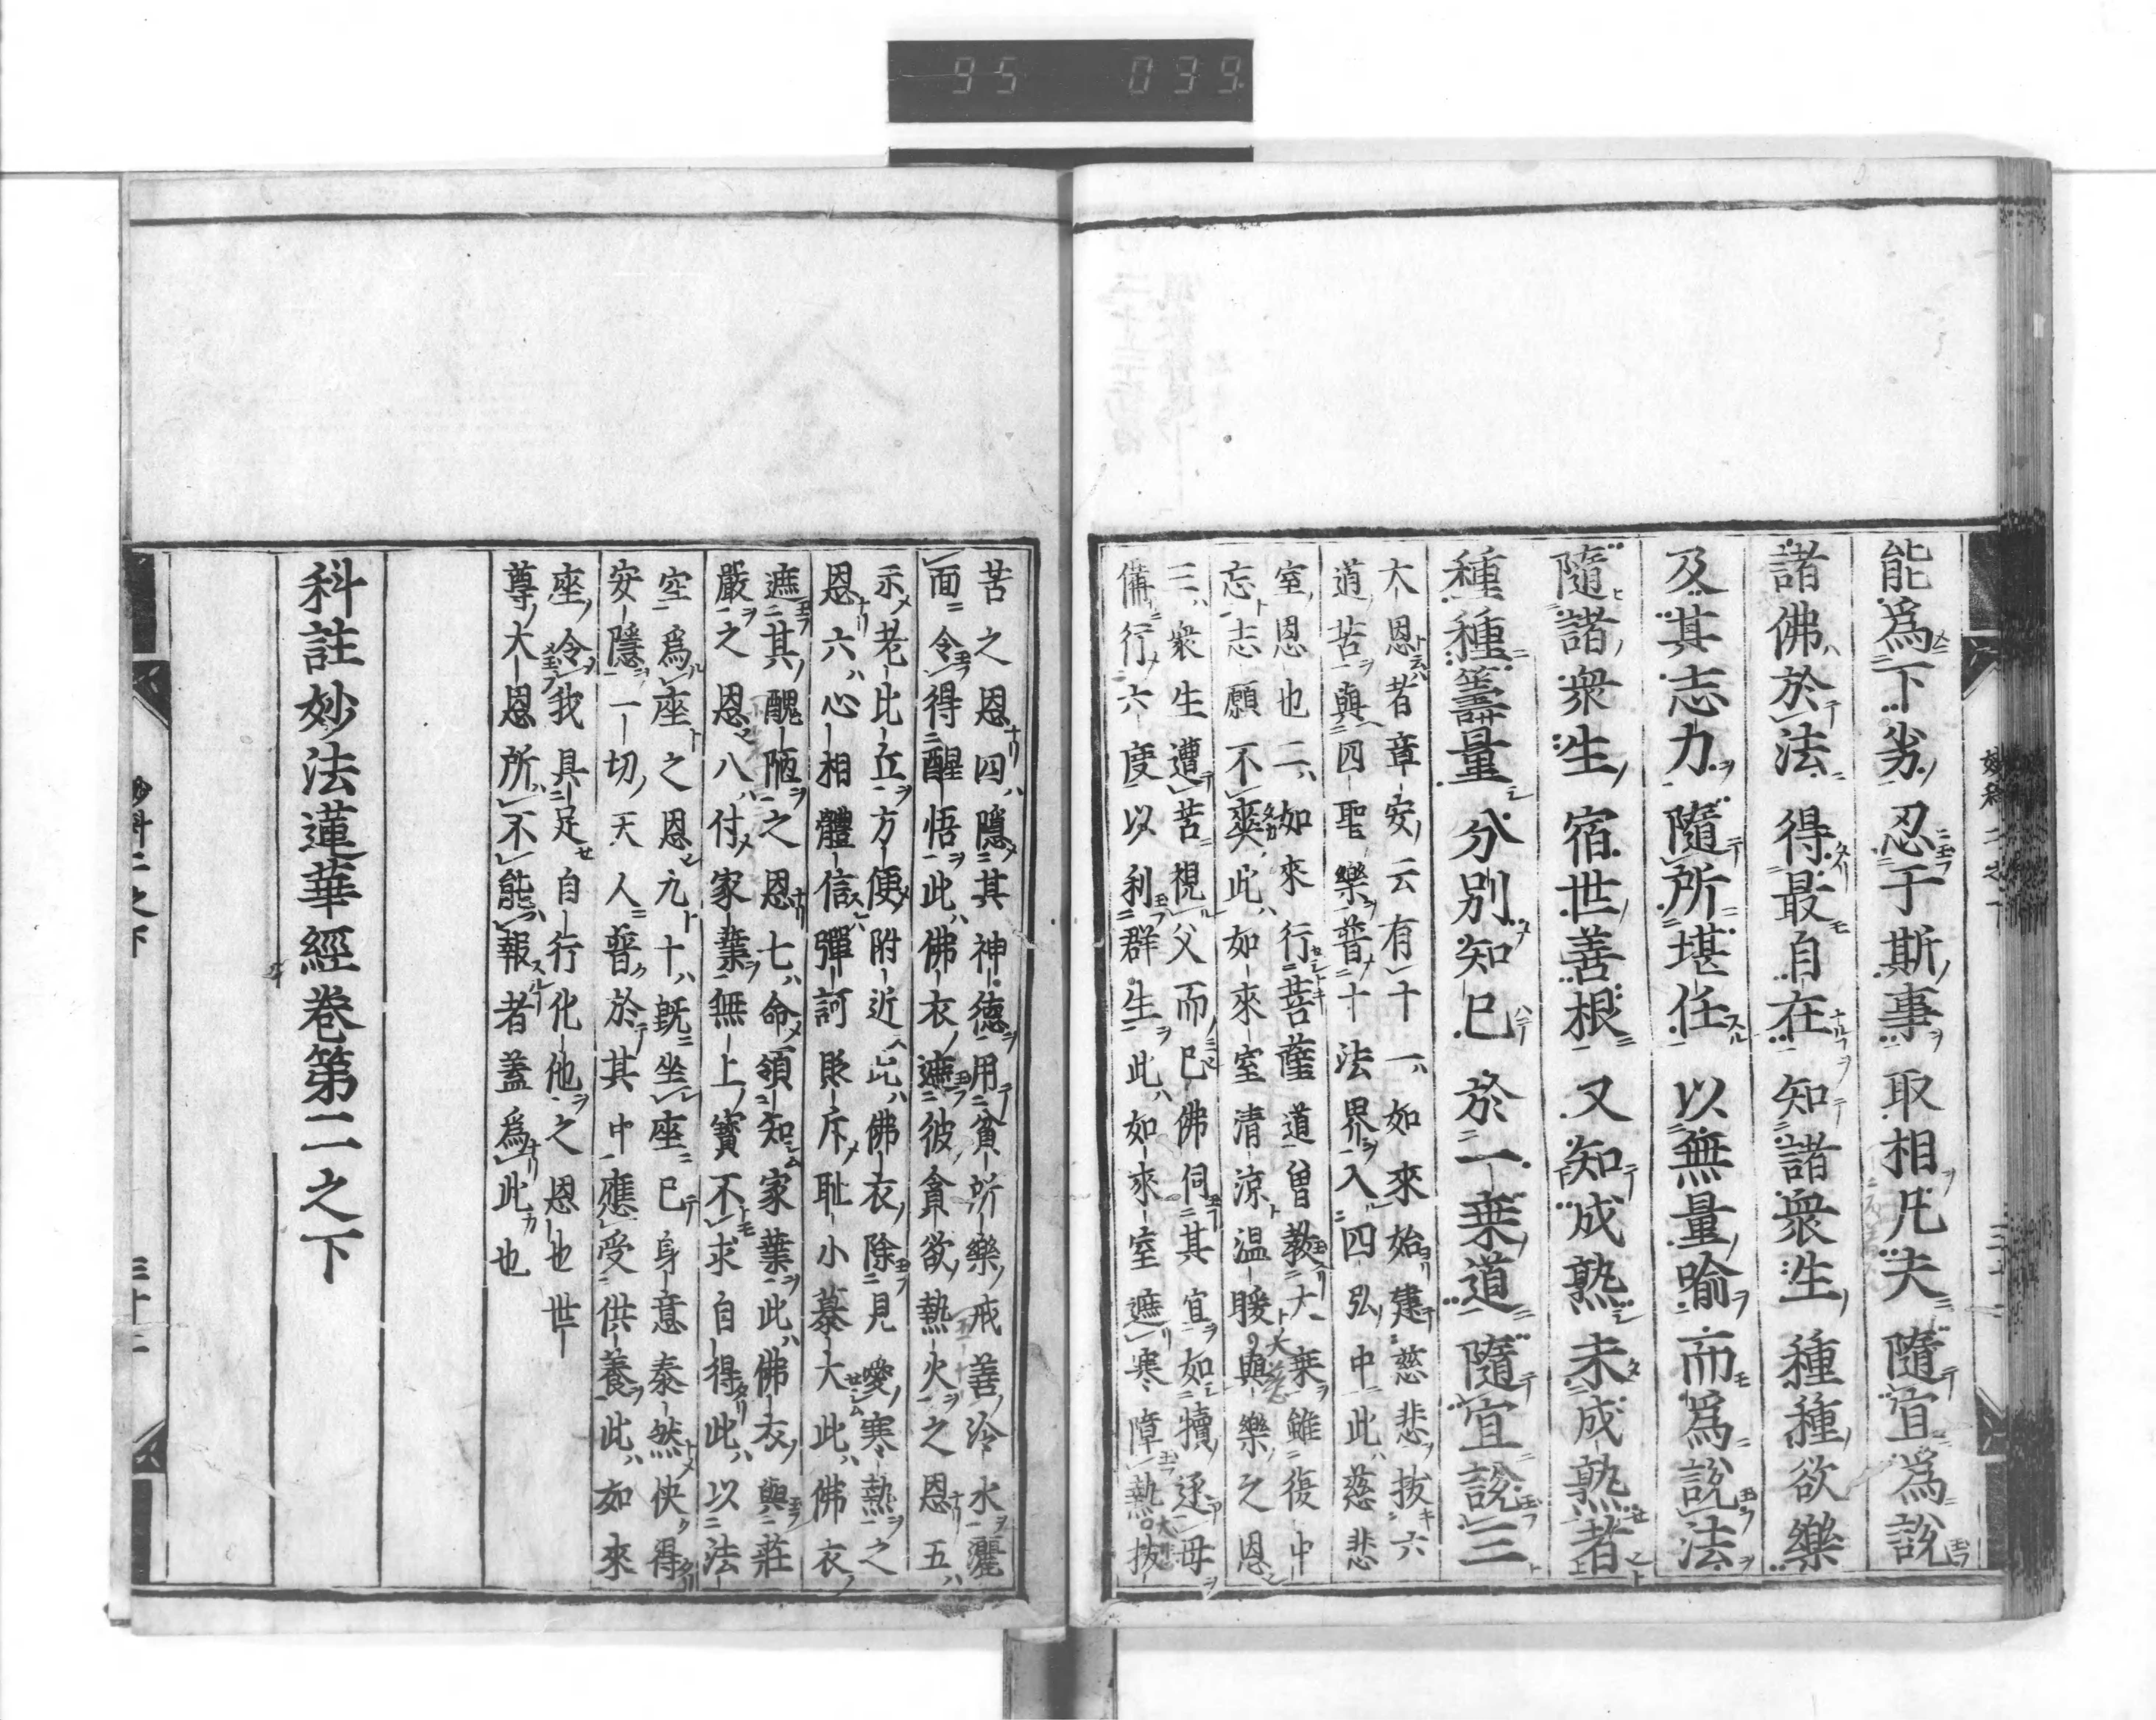 95 039
能爲下劣忍于斯事取相凡夫隨宜爲說
諸佛於法得最自在知諸衆生種種欲樂
及其志力隨所堪任以無量喻而爲說法
隨諸衆生宿世善根又知成熟未成熟者
種種籌量分別知已於一乗道隨宜說三
大恩者章安云有十一如來始建慈悲拔六
道苦與四聖樂普十法界入四弘中此慈悲
室恩也二如來行菩薩道曽教大乗雖復中
忘志願不爽此如來室清涼温暖與樂之恩
三衆生遭苦視父而已佛伺其宜如犢逐母
備行六度以利群生此如來室遮寒障熱拔
苦之恩四隱其神德用貧所樂戒善冷水灑
面令得醒悟此佛衣遮彼貪欲熱火之恩五
示老比丘方便附近此佛衣除見愛寒熱之
恩六心相體信彈訶貶斥耻小慕大此佛衣
遮其醜陋之恩七命領知家業此佛衣與莊
嚴之恩八付家業無上寳不求自得此以法
空爲座之恩九十既坐座已身意泰然快得
安隱一切天人普於其中應受供養此如來
座令我具足自行化他之恩也世
尊大恩所不能報者蓋爲此也
科註妙法蓮華經卷第二之下
妙科二之下
三十二